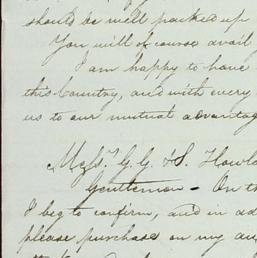 should be well packed up
You will of course avail
I am happy to have
this Country, and with every
us to our mutual advantag
Messrs. G. G. & S. Howla
Gentlemen - On th
I beg to confirm, and in ad
please purchase on my